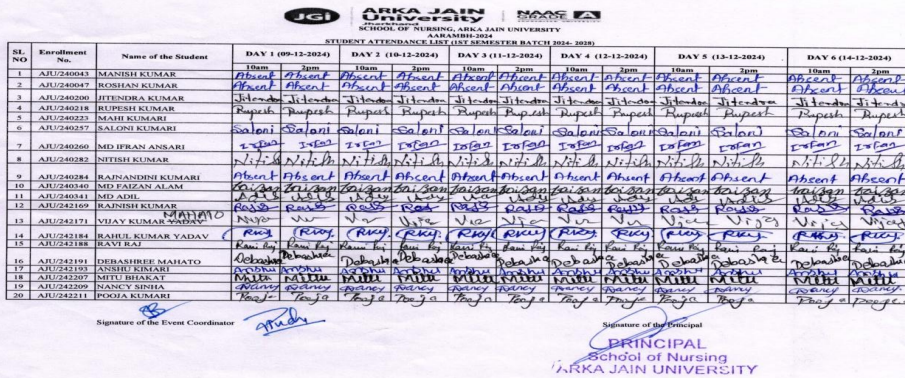 JGi ARKA JAIN University Jharkhand NAAC GRADE A
SCHOOL OF NURSING, ARKA JAIN UNIVERSITY
AARAMBH-2024
STUDENT ATTENDANCE LIST (1ST SEMESTER BATCH 2024- 2028)
SL NO Enrollment No. Name of the Student DAY 1 (09-12-2024) DAY 2 (10-12-2024) DAY 3 (11-12-2024) DAY 4 (12-12-2024) DAY 5 (13-12-2024) DAY 6 (14-12-2024)
10am 2pm 10am 2pm 10am 2pm 10am 2pm 10am 2pm 10am 2pm
1 AJU/240043 MANISH KUMAR Absent Absent Absent Absent Absent Absent Absent Absent Absent Absent Absent Absent
2 AJU/240047 ROSHAN KUMAR Absent Absent Absent Absent Absent Absent Absent Absent Absent Absent Absent Absent
3 AJU/240200 JITENDRA KUMAR Jitendra Jitendra Jitendra Jitendra Jitendra Jitendra Jitendra Jitendra Jitendra Jitendra Jitendra Jitendra
4 AJU/240218 RUPESH KUMAR Rupesh Rupesh Rupesh Rupesh Rupesh Rupesh Rupesh Rupesh Rupesh Rupesh Rupesh Rupesh
5 AJU/240223 MAHI KUMARI
6 AJU/240257 SALONI KUMARI Saloni Saloni Saloni Saloni Saloni Saloni Saloni Saloni Saloni Saloni Saloni Saloni
7 AJU/240260 MD IFRAN ANSARI Irfan Irfan Irfan Irfan Irfan Irfan Irfan Irfan Irfan Irfan Irfan Irfan
8 AJU/240282 NITISH KUMAR Nitish Nitish Nitish Nitish Nitish Nitish Nitish Nitish Nitish Nitish Nitish Nitish
9 AJU/240284 RAJNANDINI KUMARI Absent Absent Absent Absent Absent Absent Absent Absent Absent Absent Absent Absent
10 AJU/240340 MD FAIZAN ALAM Faizan Faizan Faizan Faizan Faizan Faizan Faizan Faizan Faizan Faizan Faizan Faizan
11 AJU/240341 MD ADIL
12 AJU/242169 RAJNISH KUMAR
MAHATO
13 AJU/242171 VIJAY KUMAR YADAV
14 AJU/242184 RAHUL KUMAR YADAV RKY RKY RKY RKY RKY RKY RKY RKY RKY RKY RKY RKY
15 AJU/242185 RAVI RAJ Ravi Raj Ravi Raj Ravi Raj Ravi Raj Ravi Raj Ravi Raj Ravi Raj Ravi Raj Ravi Raj Ravi Raj Ravi Raj Ravi Raj
16 AJU/242191 DEBASHREE MAHATO Debashree Debashree Debashree Debashree Debashree Debashree Debashree Debashree Debashree Debashree Debashree Debashree
17 AJU/242193 ANSHU KIMARI Anshu Anshu Anshu Anshu Anshu Anshu Anshu Anshu Anshu Anshu Anshu Anshu
18 AJU/242207 MITU BHAKAT Mitu Mitu Mitu Mitu Mitu Mitu Mitu Mitu Mitu Mitu Mitu Mitu
19 AJU/242209 NANCY SINHA Nancy Nancy Nancy Nancy Nancy Nancy Nancy Nancy Nancy Nancy Nancy Nancy
20 AJU/242211 POOJA KUMARI Pooja Pooja Pooja Pooja Pooja Pooja Pooja Pooja Pooja Pooja Pooja Pooja
Signature of the Event Coordinator Signature of the Principal
PRINCIPAL
School of Nursing
ARKA JAIN UNIVERSITY